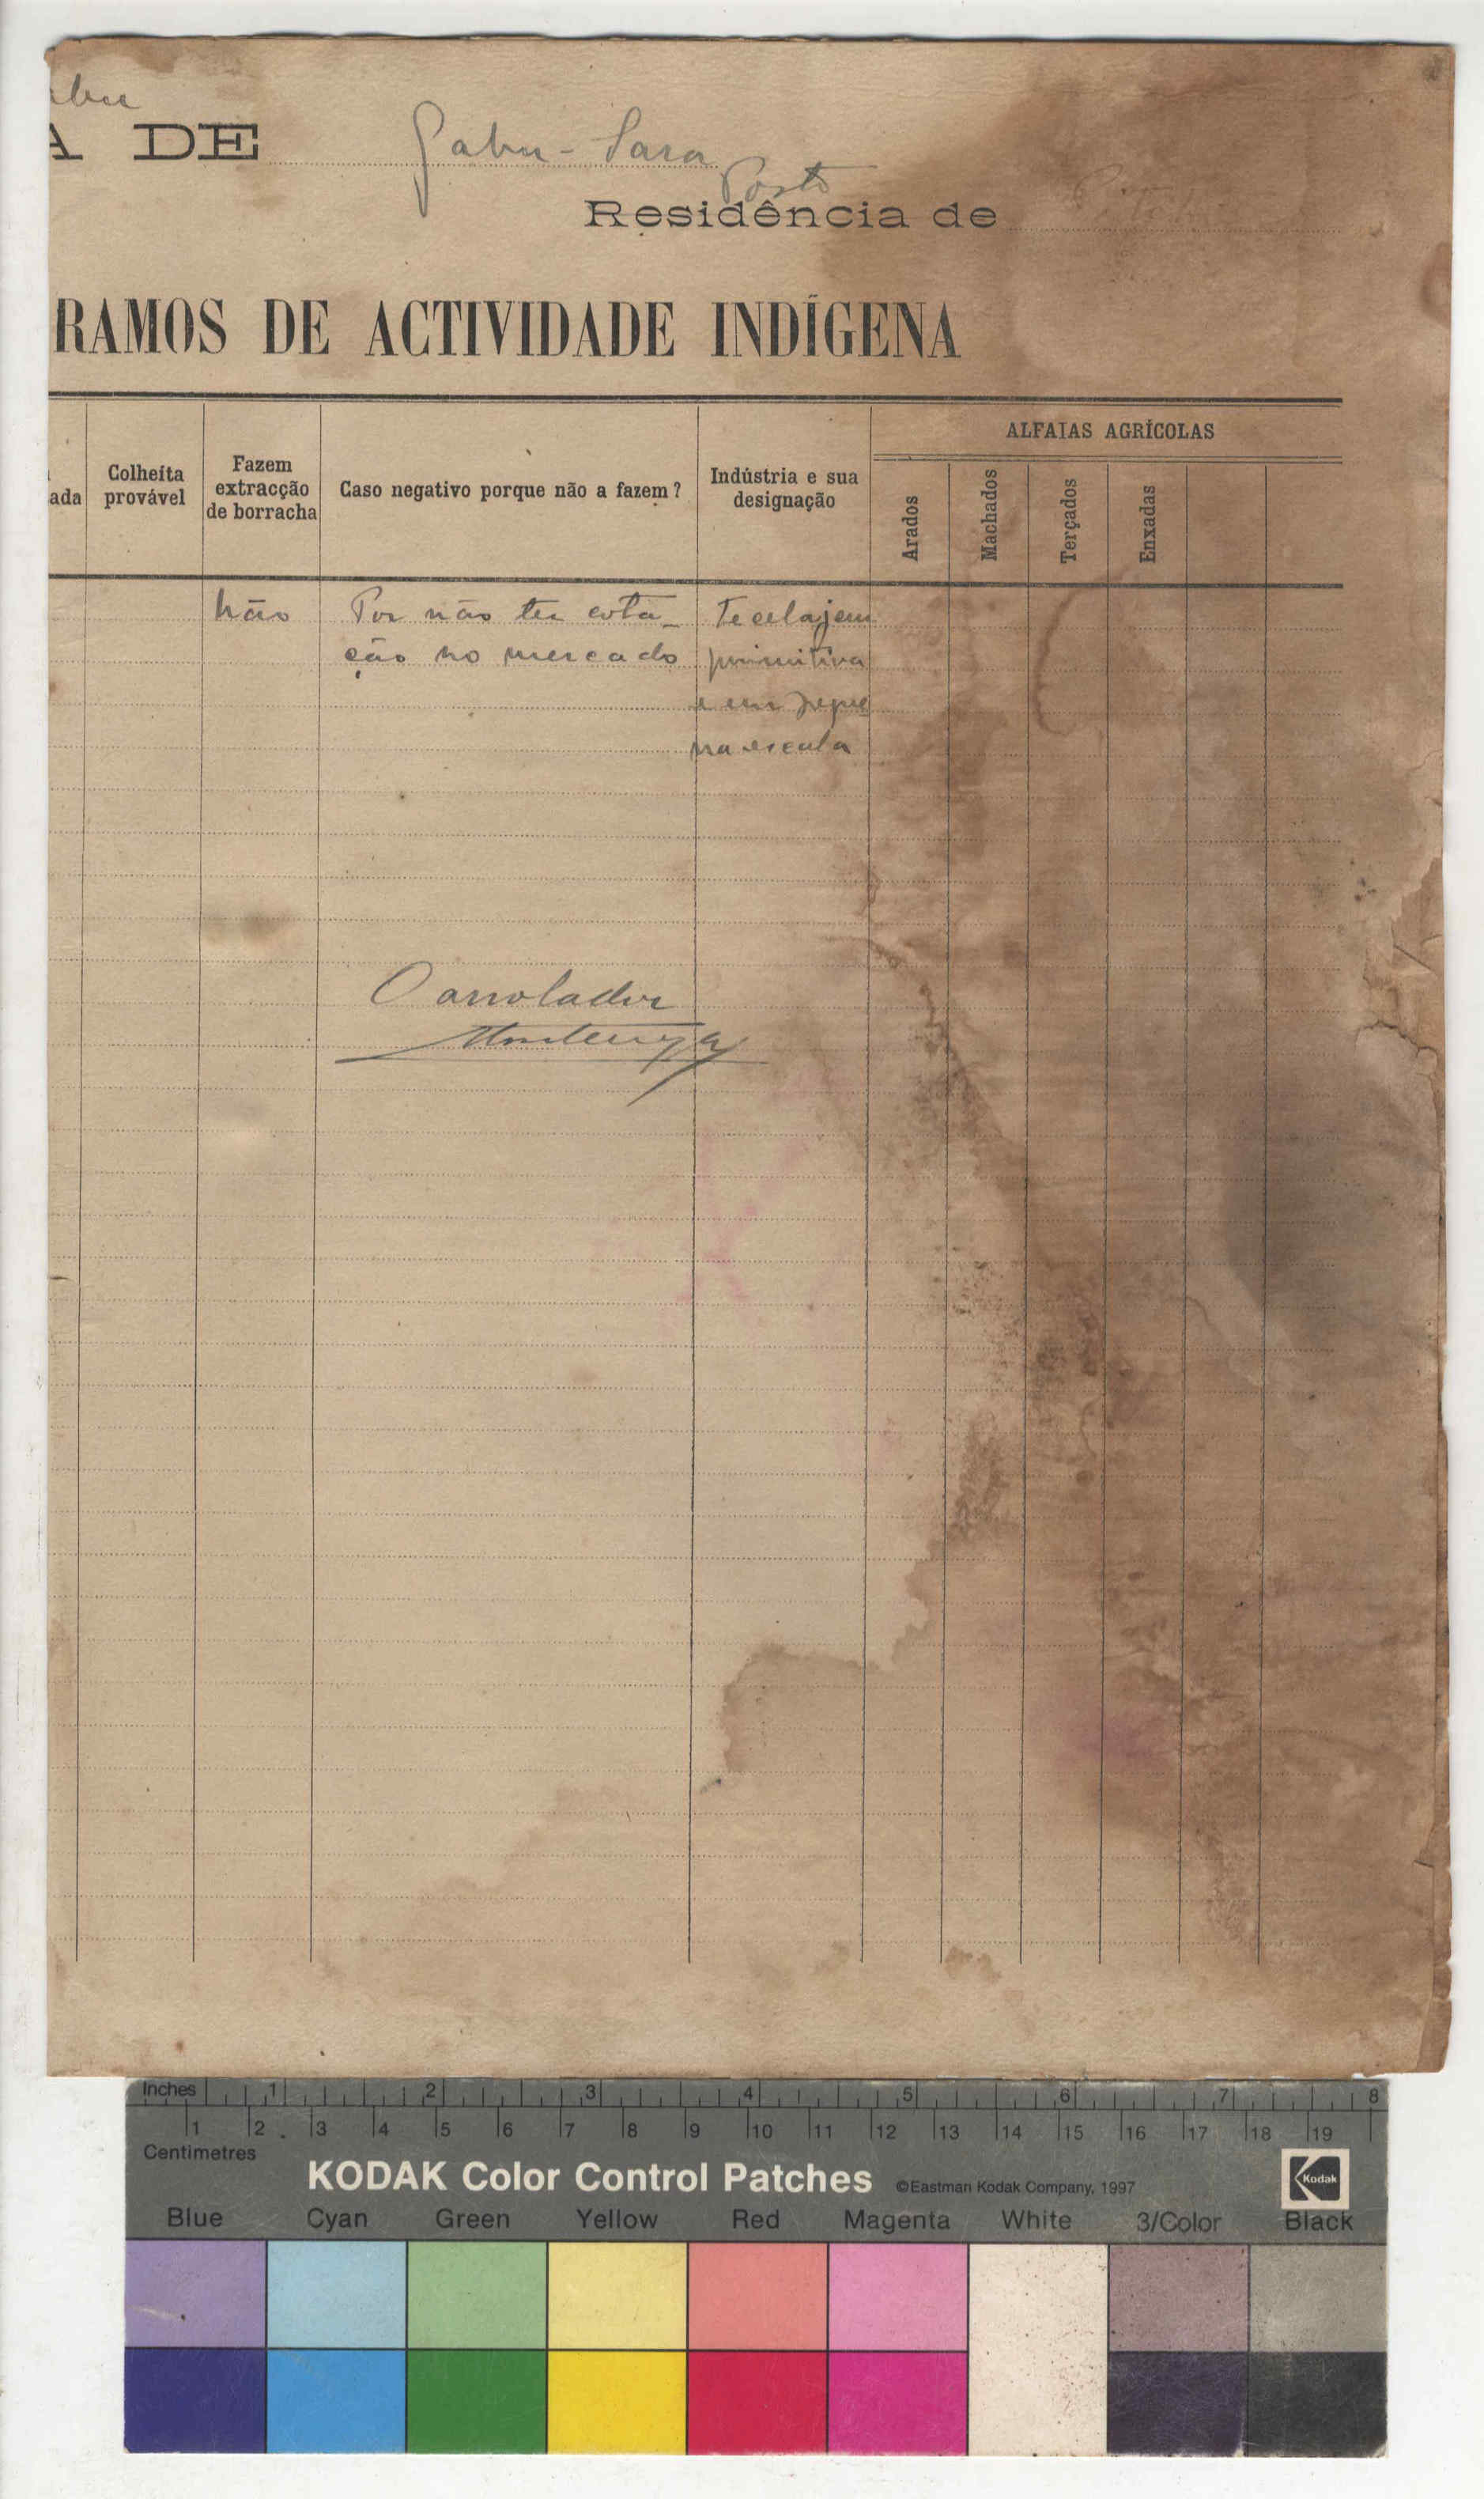 abu
A DE Gabu-Sara
Posto
Residência de
RAMOS DE ACTIVIDADE INDÍGENA
ada
Colheita
provável
Fazem
extracção
de borracha
Caso negativo porque não a fazem?
Indústria e sua
designação
ALFAIAS AGRÍCOLAS
Arados
Machados
Terçados
Enxadas
Não Por não ter cota- Tecelajem
ção no mercado primitiva
e em peque
na escala
O arrolador
Inches 1 2 3 4 5 6 7 8
1 2 3 4 5 6 7 8 9 10 11 12 13 14 15 16 17 18 19
Centimetres
KODAK Color Control Patches ©Eastman Kodak Company, 1997 Kodak
Blue Cyan Green Yellow Red Magenta White 3/Color Black